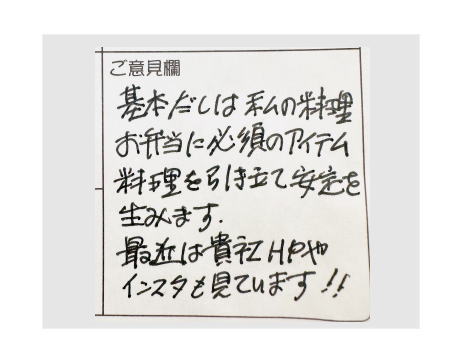 ご意見欄
基本だしは私の料理
お弁当に必須のアイテム
料理を引き立て安定を
生みます.
最近は貴社HPや
インスタも見ています!!